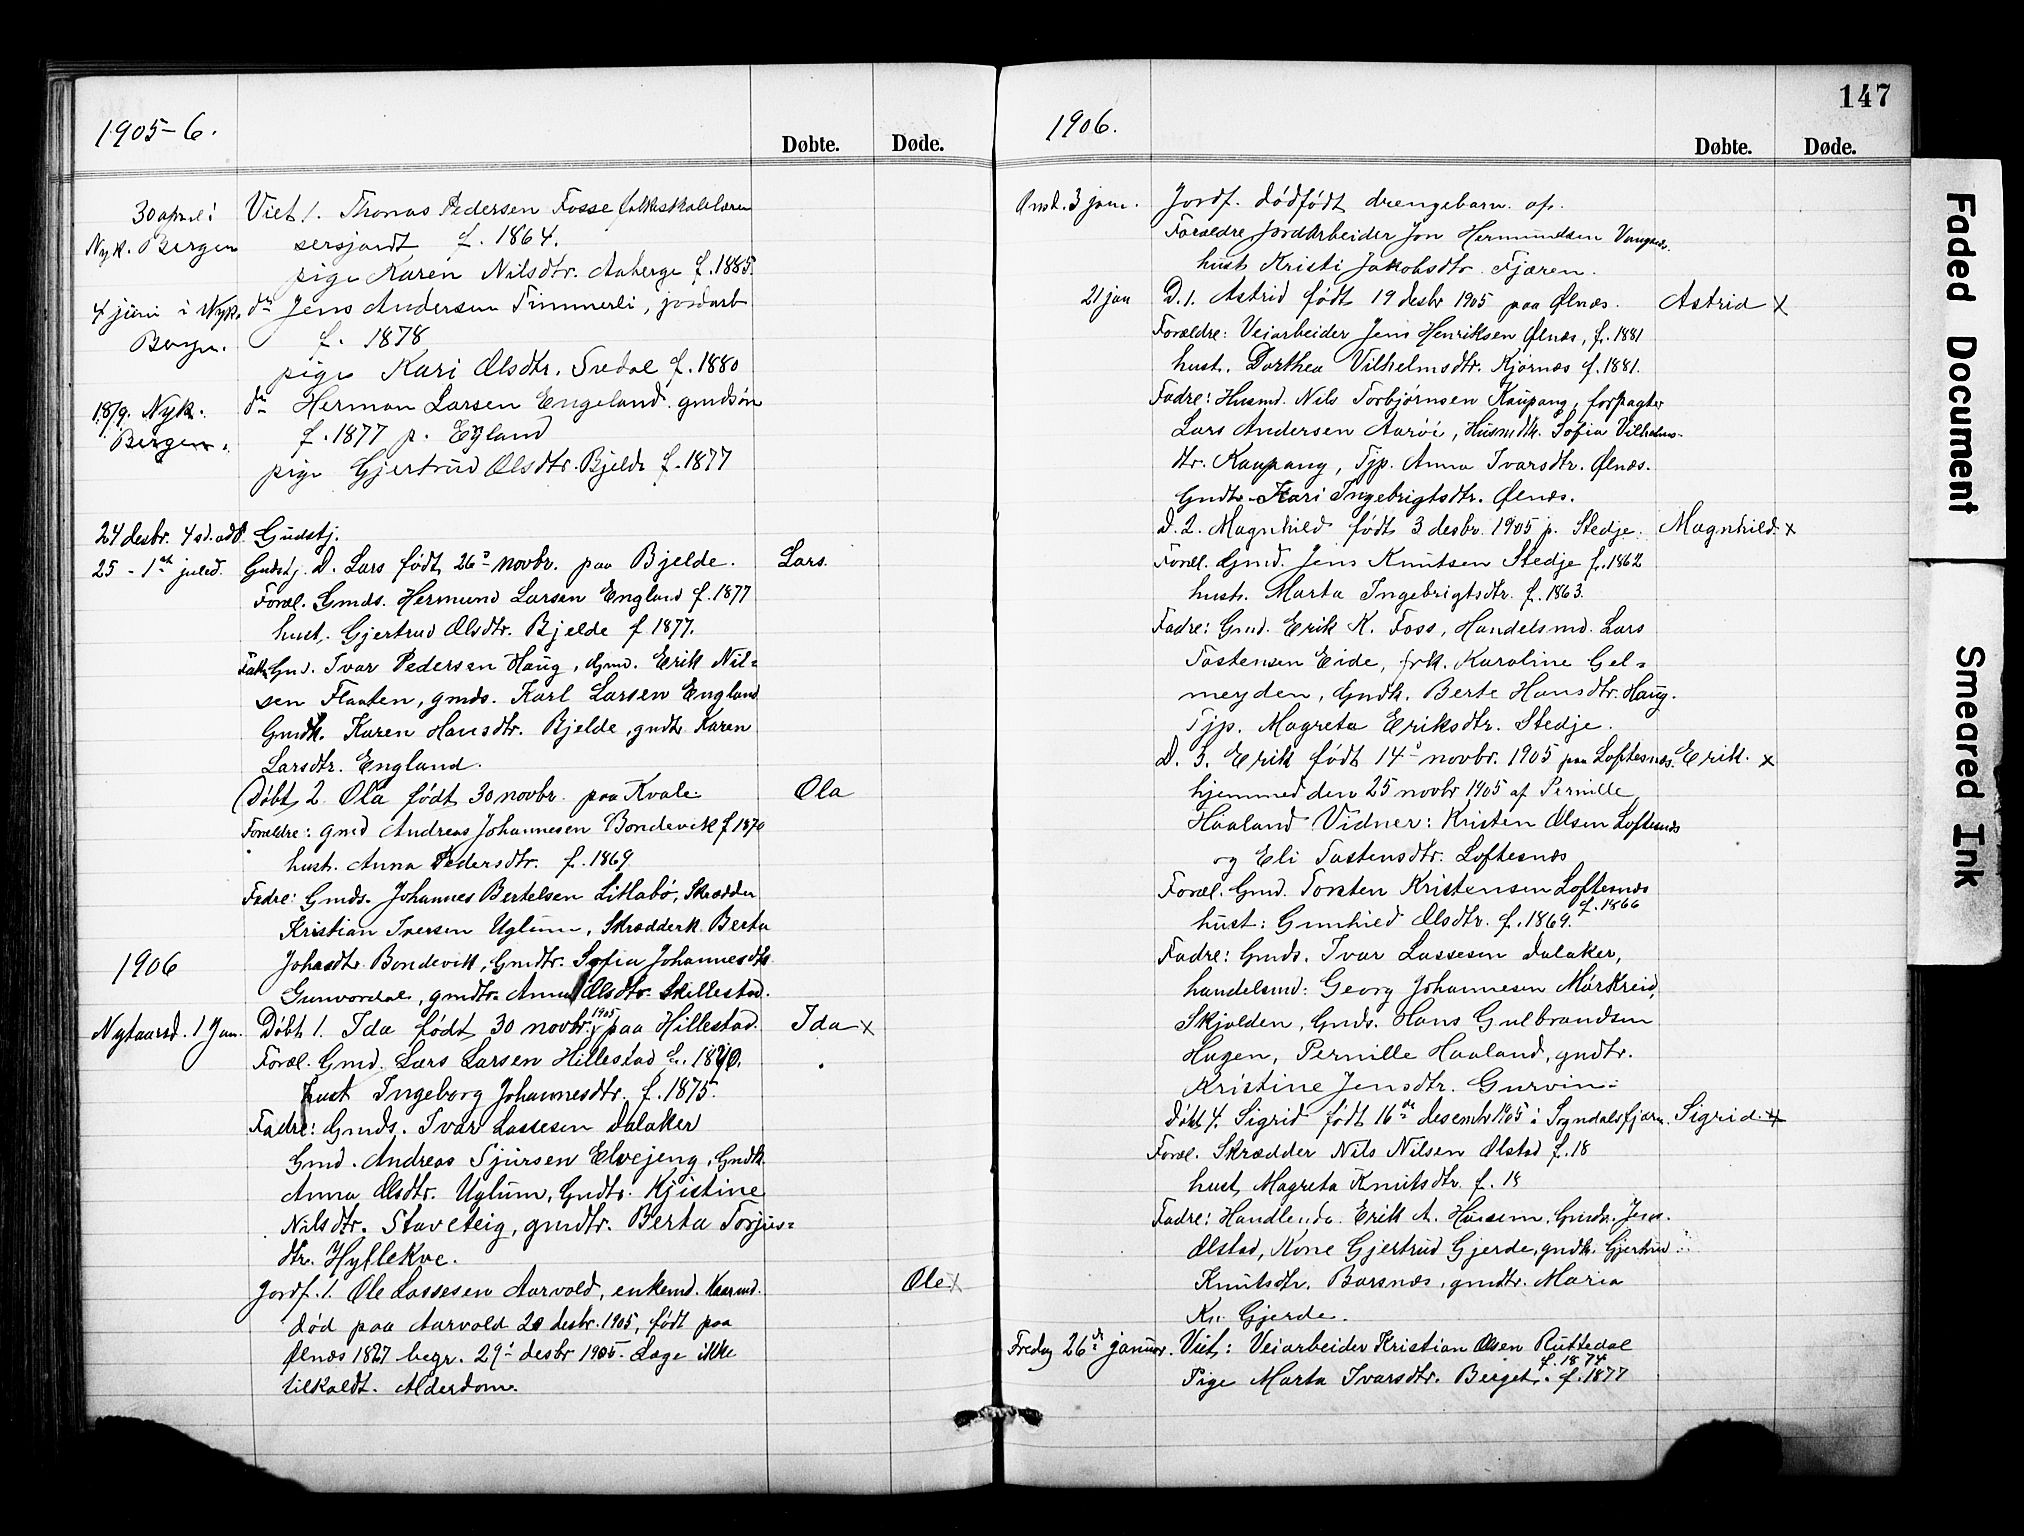 1905-6.
Døbte.
Døde.
30 april i
Nyk. Bergen
Viet 1. Thomas Pedersen Fosse
f. 1864.
pige Karen Nilsdtr. Aaberge f. 1885.
4 juni i Nyk.
Bergn.
do Jens Andersen Timmerli, jordarb
f. 1878
pige Kari Olsdtr. Svedal f. 1880
18/9. Nyk.
Bergen.
do Herman Larsen Engeland. gmdsøn
f. 1877 p. England
pige Gjertrud Olsdtr. Bjelde f. 1877
24 desbr. 4 sd. adv. Gudstj.
25 - 1st juled. Gudstj. D. Lars født 26 novbr. paa Bjelde. Lars.
Foræl. Gmds. Hermund Larsen England f. 1877
hust. Gjertrud Olsdtr. Bjelde f 1877.
Fadr. Gmd. Ivar Pedersen Haug, Gmd. Erik Nil=
sen Flaaten, gmds. Karl Larsen England
Gmdk. Karen Hansdtr. Bjelde, gmdtr. Karen
Larsdtr. England.
Døbt 2 Ola født 30 novbr. paa Kvale. Ola
Forældre: gmd Andreas Johannesen Bondevik f 1870
hust. Anna Pedersdtr. f. 1869
Fadre: Gmds. Johannes Bertelsen Litlabø, Skrædder
Kristian Iversen Uglum, Skrædderk. Berta
Johasdtr. Bondevik, Gmdtr. Sofia Johannesdtr.
Gunvordal, gmdtr. Anna Olsdtr. Skillestad.
1906
Nytaarsd. 1 Jan. Døbt 1. Ida født 30 novbr. 1905 paa Hillestad. Ida x
Foræl. Gmd. Lars Larsen Hillestad f. 1870.
hust Ingeborg Johannesdtr. f. 1875.
Fadre: Gmds. Ivar Lassesen Dalaker
Gmd. Andreas Sjursen Elvejeng, Gmdk.
Anna Olsdtr. Uglum, Gmdtr. Kjistine
Nilsdtr. Staveteig, gmdtr. Berta Torjus=
dtr. Hyllekve.
Jordf. 1. Ole Lassesen Aarvold, enkemd. Kaarmd. Ole x
død paa Aarvold 20 desbr. 1905, født paa
Ølnæs 1827 begr. 29 desbr 1905. Læge ikke
tilkaldt. Alderdom.
147
1906.
Døbte.
Døde.
Onsd. 3 jan. Jordf. dødfødt drengebarn af.
Forældre Jordarbeider Jon Hermundsen
hust Kristi Jakobsdtr. Fjæren.
21 jan D. 1. Astrid født 19 desbr 1905 paa Ølnæs. Astrid x
Forældre: Veiarbeider Jens Henriksen Ølnæs, f. 1881
hust. Dorthea Vilhelmsdtr. Kjørnæs f. 1881.
Fadre: Husmd. Nils Torbjørnsen Kaupang, forpagter
Lars Andersen Aarøi, Husmdk. Sofia Vilhelms-
dtr. Kaupang, Tjp. Anna Ivarsdtr. Ølnæs.
Gmdtr. Kari Ingebrigtsdtr. Ølnæs.
D. 2. Magnhild født 3 desbr. 1905 p. Stedje. Magnhild. x
Foræl. Gmd. Jens Knutsen Stedje f. 1862
hust. Marta Ingebrigtsdtr. f. 1863.
Fadre: Gmd. Erik K. Foss, Handelsmd. Lars
Tostensen Eide, frk. Karoline Gel=
meyden, Gmdk. Berte Hansdtr. Haug.
Tjp. Magreta Eriksdtr. Stedje.
D. 3. Erik født 14 novbr. 1905 paa Loftesnæs. Erik. x
hjemmed den 25 novbr 1905 af Pernille
Haaland Vidner: Kristen Olsen Loftesnæs
og Eli Tostensdtr. Loftesnæs
Foræl. Gmd. Torsten Kristensen Loftesnæs
f. 1866
hust: Gunhild Olsdtr. f. 1869.
Fadre: Gmds. Ivar Lassesen Dalaker,
handelsmd: Georg Johannesen Mørkreid,
Skjolden, Gmds. Hans Gulbrandsen
Hagen, Pernille Haaland, gmdtr.
Kristine Jensdtr. Gurvin.
Døbt 4. Sigrid født 16de desembr 1905 i Sogndalsfjæren. Sigrid. x
Foræl. Skrædder Nils Nilsen Ølstad f. 18
hust Magreta Knutsdtr f. 18
Fadre: Handlende Erik A. Husum, Gmds. Jens
Ølstad, Kone Gjertrud Gjerde, gmdk. Gjertrud
Knutsdtr. Barsnæs, gmdtr. Maria
Kn. Gjerde.
Fredag 26de januar. Viet: Veiarbeider Kristian Olsen Ruttedal
f. 1874
Pige Marta Ivarsdtr. Berget. f. 1877
Faded Document
Smeared Ink